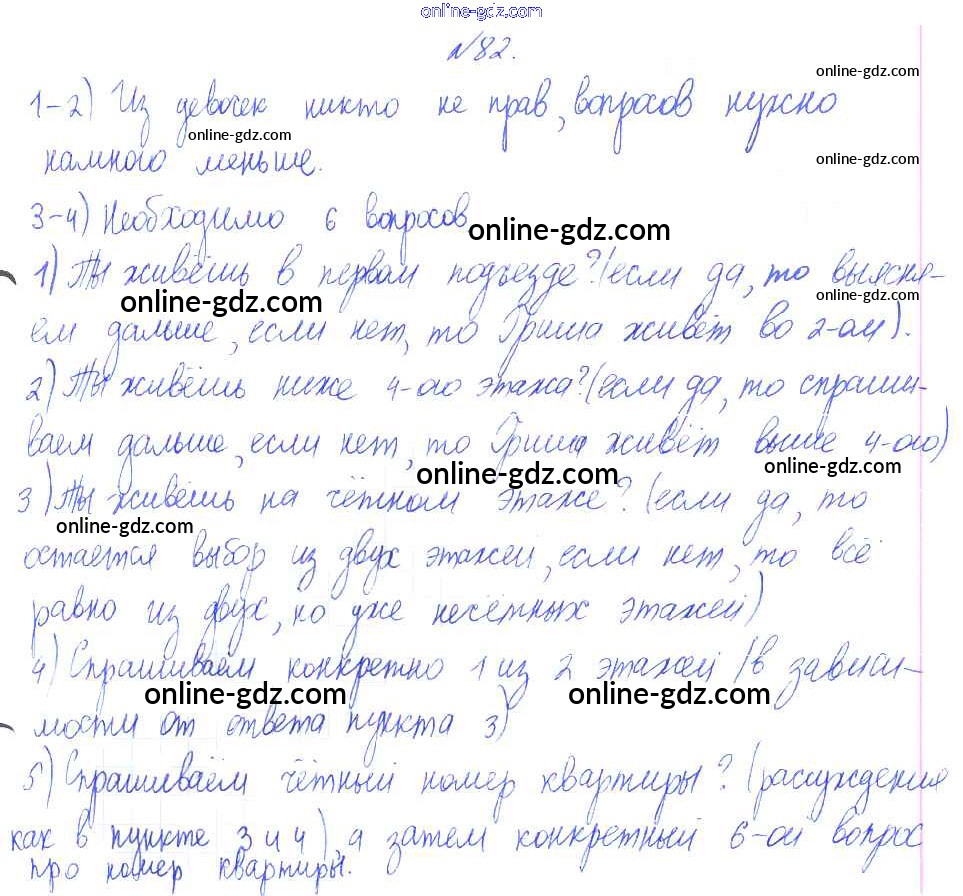 online-gdz.com
№82.
online-gdz.com
1-2) Из девочек никто не прав, вопросов нужно
online-gdz.com
намного меньше.
online-gdz.com
3-4) Необходимо 6 вопросов
online-gdz.com
1) Ты живёшь в первом подъезде? (если да, то выясня-
online-gdz.com
online-gdz.com
ем дальше, если нет, то Гриша живёт во 2-ом).
2) Ты живёшь ниже 4-ого этажа? (если да, то спраши-
ваем дальше, если нет, то Гриша живёт выше 4-ого)
online-gdz.com
online-gdz.com
3) Ты живёшь на чётном этаже? (если да, то
online-gdz.com
остается выбор из двух этажей, если нет, то всё
равно из двух, но уже несётных этажей)
4) Спрашиваем конкретно 1 из 2 этажей (в зависи-
online-gdz.com
online-gdz.com
мости от ответа пункта 3)
5) Спрашиваем чётный номер квартиры? (рассуждения
как в пункте 3 и 4), а затем конкретный 6-ой вопрос
про номер квартиры.